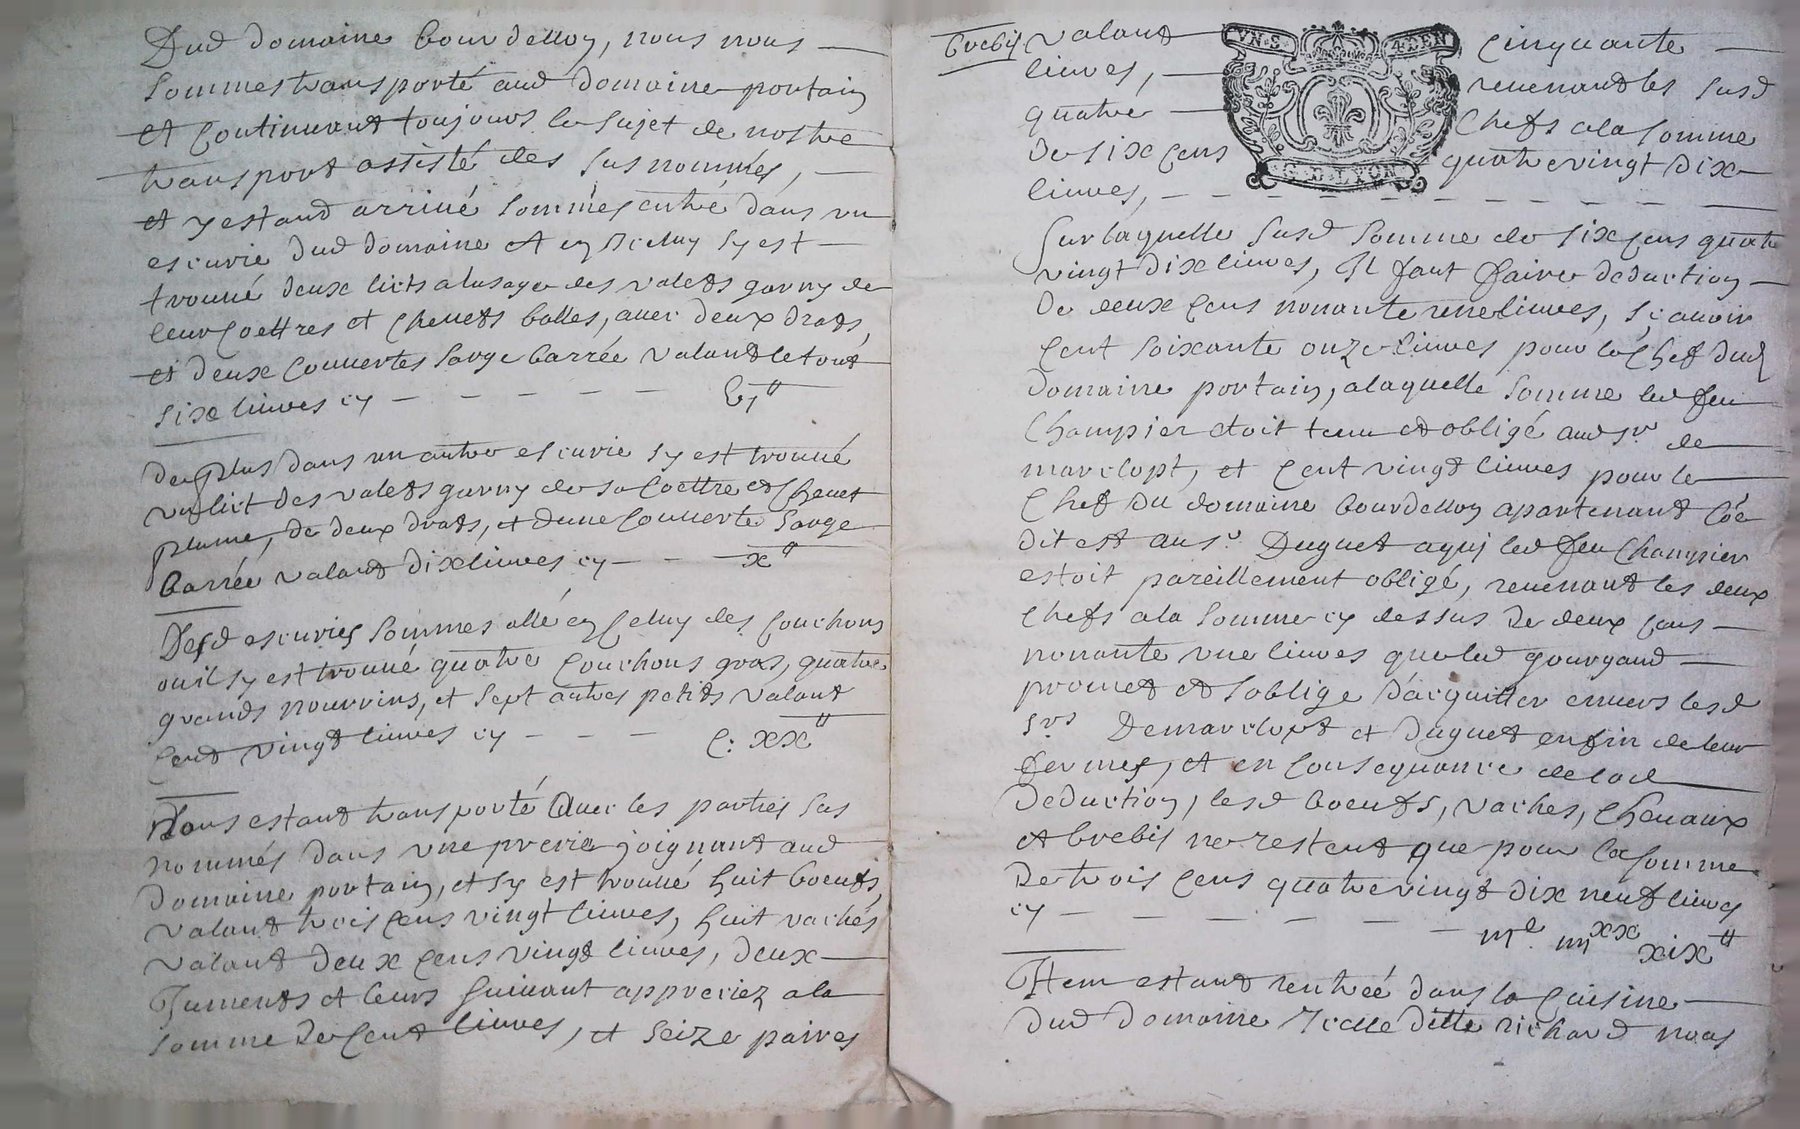 Dud domaine bourdellon, nous nous
sommes transporté aud domaine portain
et continuant toujours le sujet de nostre
transport assisté des susnommés,
et y estant arrivé sommes entré dans un
escurie dud domaine et en Icelluy sy est
trouvé deux licts a lusage des valets garny de
leur coettres et chevets balles, avec deux draps,
et deux couvertes sarge barrée valant le tout
six livres cy vj ₶
de plus dans un autre escurie sy est trouvé
un lict des valets garny de sa coettre et chevet
plume, de deux draps, et dune couverte sarge
barrée valant dix livres cy x ₶
Desd escuries sommes allé en celuy des couchons
ou il sy est trouvé quatre couchons gras, quatre
grands nourrins, et sept autres petits valant
cent vingt livres cy C: xx ₶
Nous estant transporté avec les parties sus
nommés dans une prerie joignant aud
domaine portain, et sy est trouvé huit boeufs,
valant trois cens vingt livres, huit vaches
valant deux cens vingt livres, deux
Juments et leurs suivant appreciez a la
somme de cent livres, et seize paires
brebis valant cinquante
UN S. 4 DEN
G. D. LYON
livres, revenant les susd
quatre chefs a la somme
de six cens quatre vingt dix
livres,
Sur laquelle susd somme de six cens quatre
vingt dix livres, Il faut faire deduction
de deux cens nonante une livres, sçavoir
cent soixante onze livres pour le chef dud
domaine portain, a laquelle somme led feu
Champier etoit tenu et obligé aud sr de
marclopt, et cent vingt livres pour le
chef du domaine bourdellon apartenant co͠e
dit est au sr Duguet a qui led feu Champier
estoit pareillement obligé, revenant les deux
chefs a la somme cy dessus de deux cens
nonante une livres que led gourgand
promet et soblige d'acquitter envers lesd
srs Demarclopt et Duguet en fin de leur
fermes, et en consequance de lad
deduction, lesd boeufs, vaches, chevaux
et brebis ne restent que pour la somme
de trois cens quatre vingt dix neuf livres
cy iijc iiijxx xix ₶
Item estant rentréé dans la cuisine
dud domaine Icelle ditte richard nous